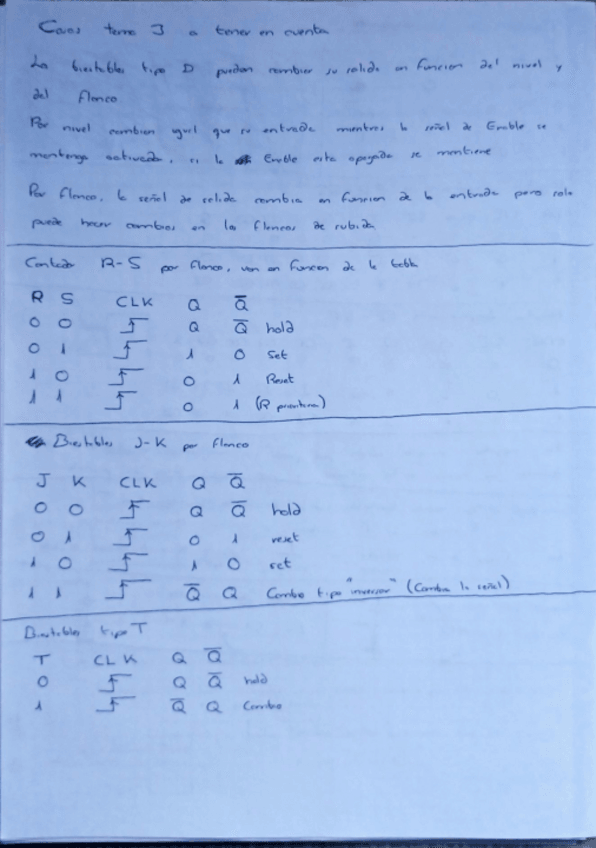 Cosas tema 3 a tener en cuenta
Los biestables tipo D pueden cambiar su salida en funcion del nivel y
del flanco
Por nivel cambian igual que su entrada mientras la señal de Enable se
mantenga activada, si la Enable esta apagada se mantiene
Por flanco, la señal de salida cambia en funcion de la entrada pero solo
puede hacer cambios en los flancos de subida
R-S por flanco, van en funcion de la tabla
R S CLK Q Q̅
0 0 Q Q̅ hold
0 1 1 0 Set
1 0 0 1 Reset
1 1 0 1 (R prioritaria)
Biestables J-K por flanco
J K CLK Q Q̅
0 0 Q Q̅ hold
0 1 0 1 reset
1 0 1 0 set
1 1 Q̅ Q Cambio tipo "inversor" (Cambia la señal)
Biestables tipo T
T CLK Q Q̅
0 Q Q̅ hold
1 Q̅ Q Cambio